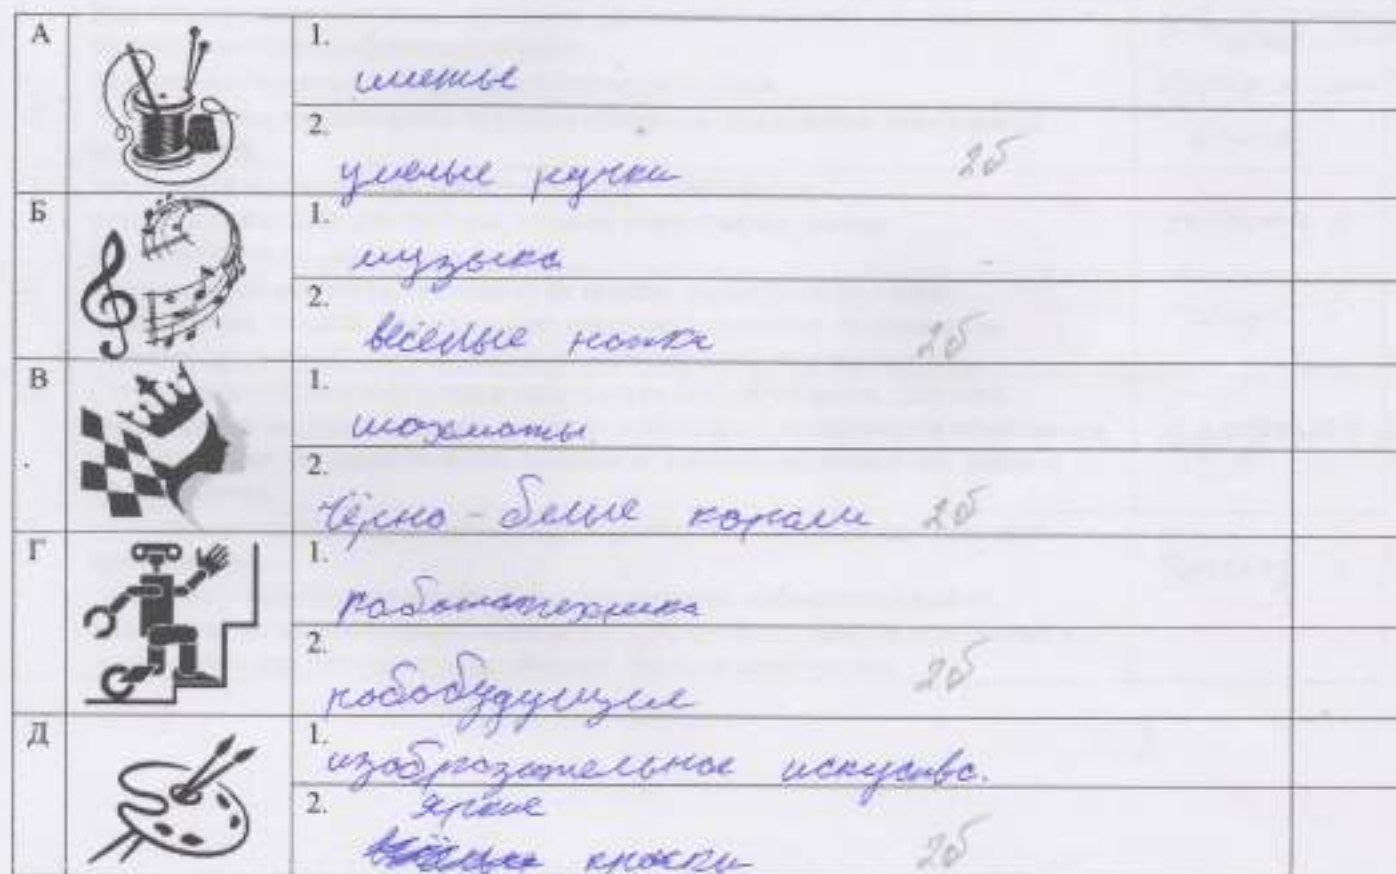 А
1.
шитье
2.
умелые ручки 2б
Б
1.
музыка
2.
весёлые нотки 2б
В
1.
шахматы
2.
Чёрно-белые короли 2б
Г
1.
работатехника
2.
рободудущее 2б
Д
1.
изобразательное искуство.
2.
яркие
краски 2б